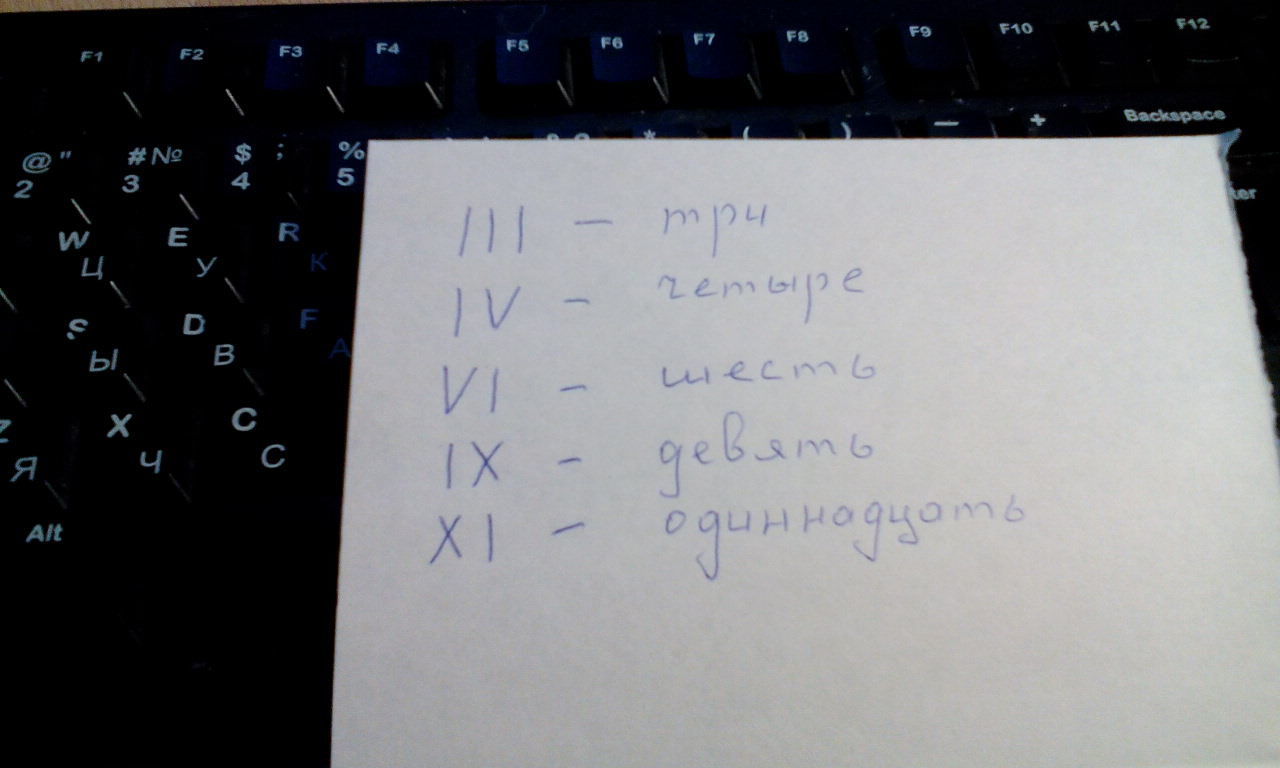 F1 F2 F3 F4 F5 F6 F7 F8 F9 F10 F11 F12
Backspace
@ " # № $ ; % * ( ) — +
2 3 4 5
W E R
Ц У К
S D F
Ы В А
Z X C
Я Ч С
Alt
III – три
IV – четыре
VI – шесть
IX – девять
XI – одиннадцать